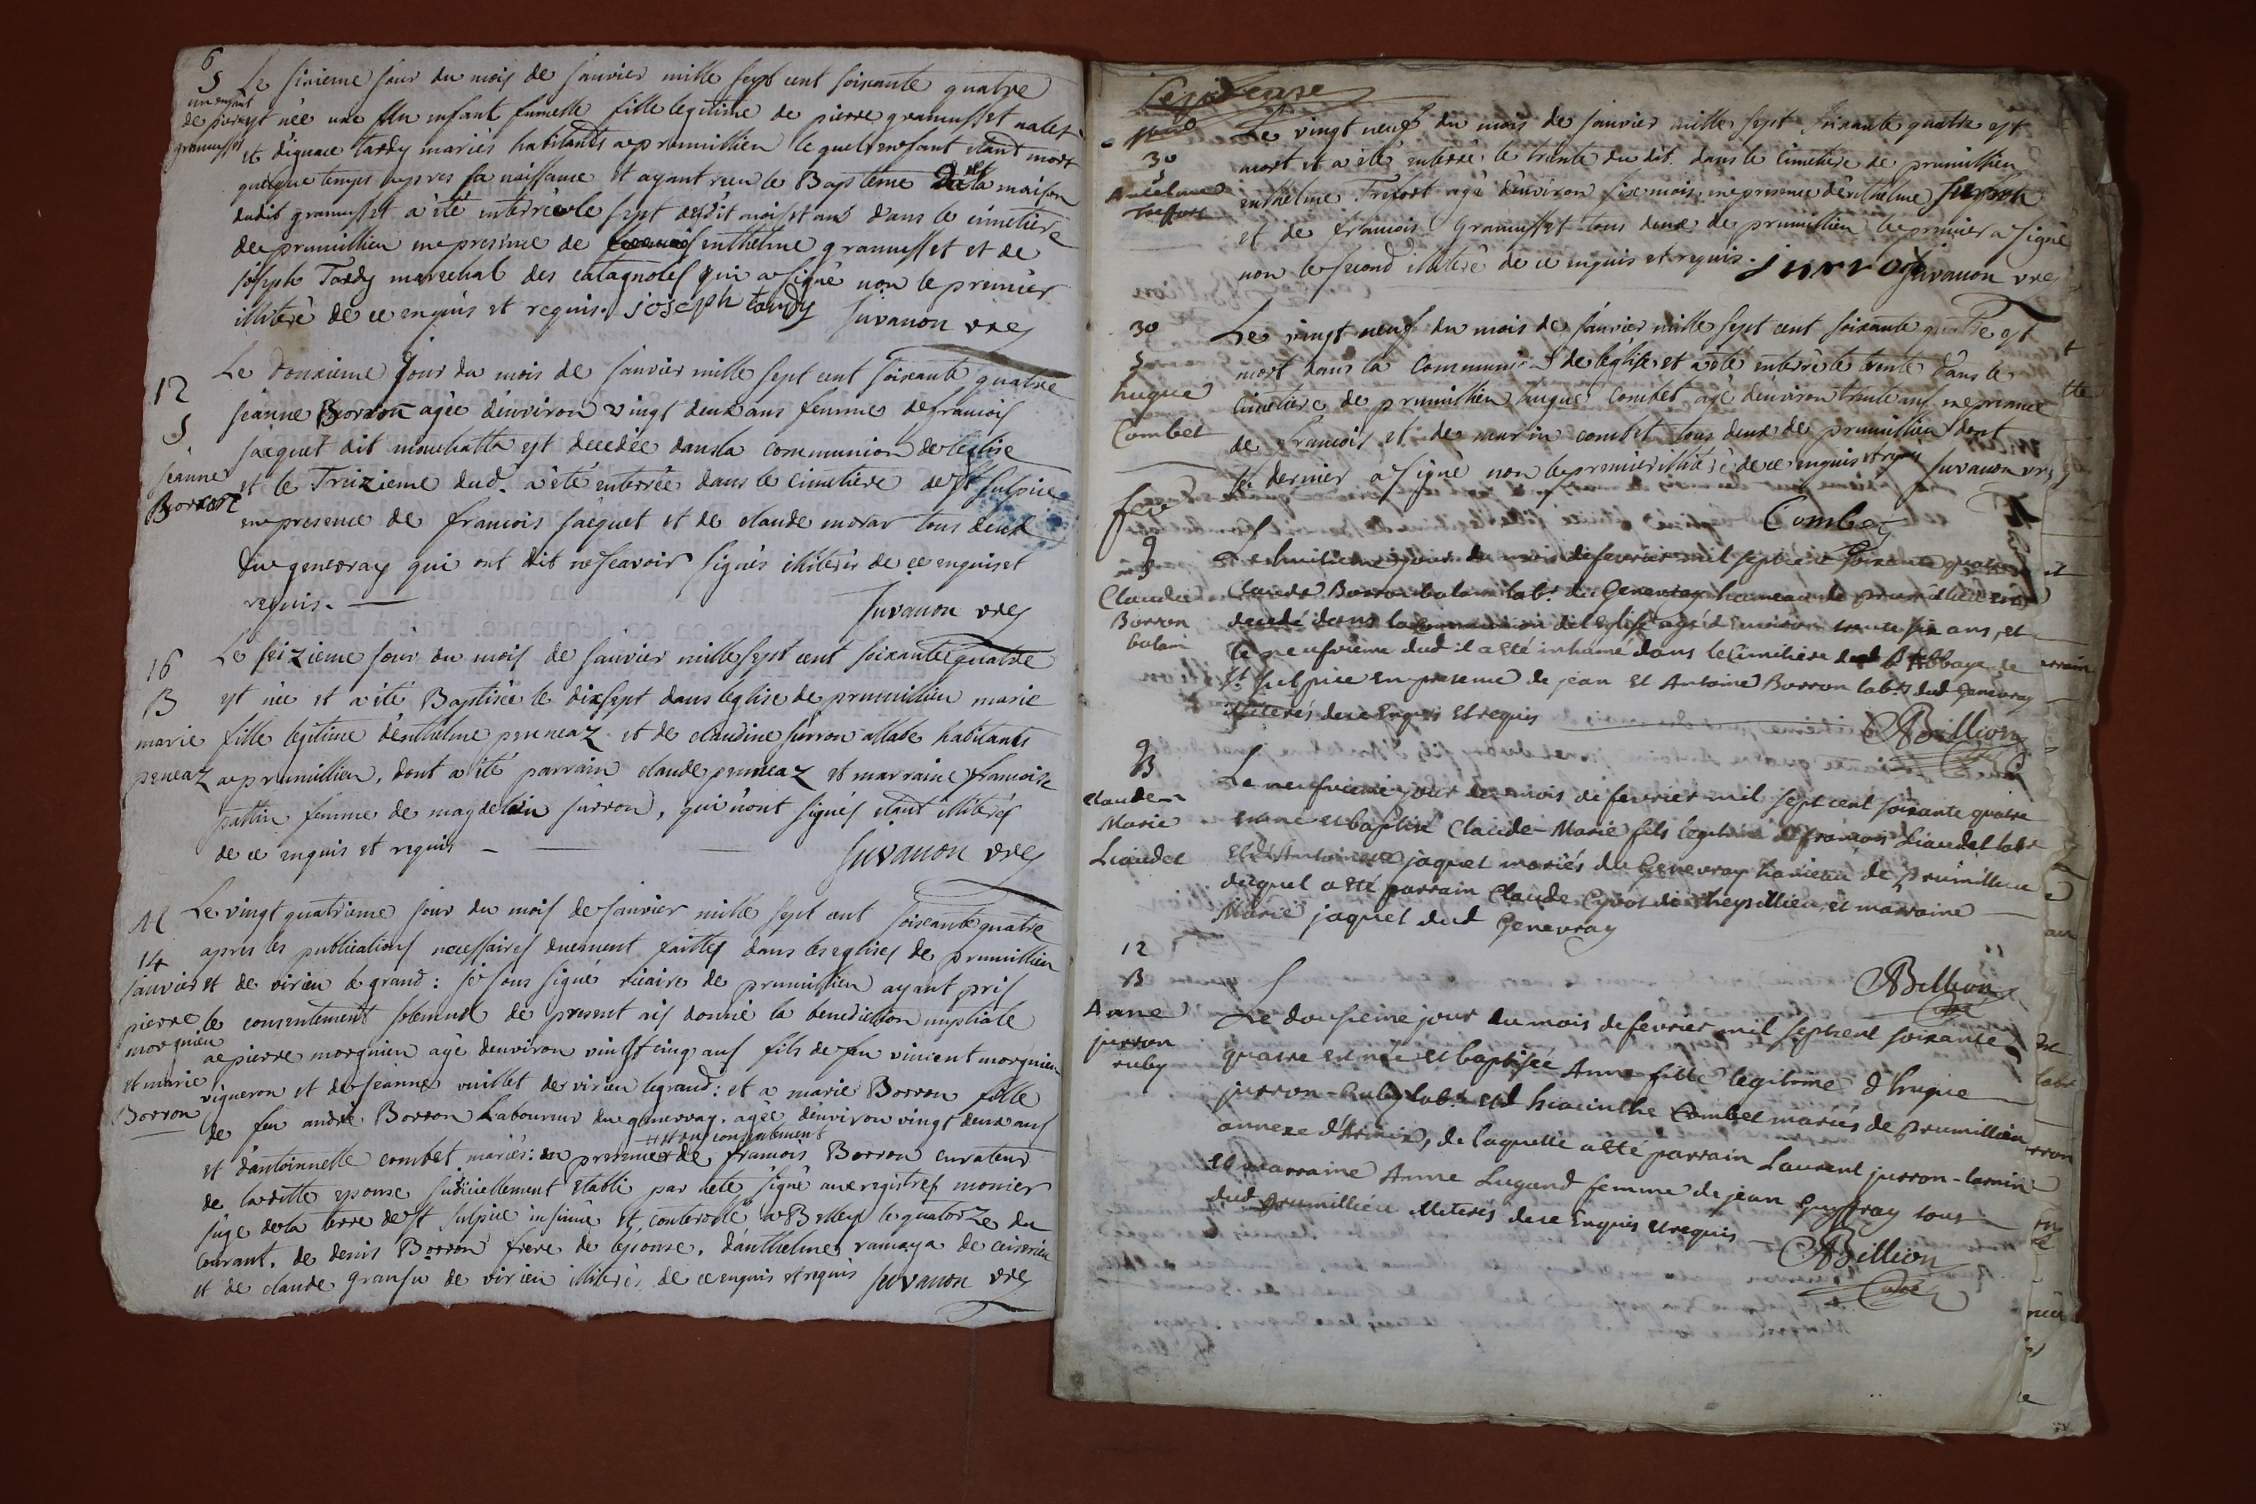 6
S
un enfant
de pierre
gramusset
Le sixieme jour du mois de janvier mille sept cent soixante quatre
est née une enfant fumelle fille legitime de pierre gramusset
et tardy mariés habitants a prumillieu le quel enfant etant mort
quelque temps apres sa naissance et ayant recu le Baptême la maison
dudit gramusset a été interré le sept dudit mois et an dans le cimetiere
de prumillieu en presence de enthelme gramusset et de
joseph Tardy marechal des catagnoles qui a signé non le premier
illiteré de ce enquis et requis. joseph tardy juvanon vre
12
S
jeanne
Borron
Le douzieme jour du mois de janvier mille sept cent soixante quatre
jeanne Borron agée d'environ vingt deux ans femme de francois
jacquet dit mouchatta est decedée dans la communion de l'eglise
et le Treizieme dud. a été enterrée dans le cimetiere de st sulpice
en presence de francois jacquet et de claude morar tous deux
du genevray qui ont dit ne scavoir signés illiterés de ce enquis et
requis. juvanon vre
16
B
marie
peneaz
Le seizieme jour du mois de janvier mille sept cent soixante quatre
est née et a été Baptisée le dixsept dans leglise de prumillieu marie
fille legitime d'enthelme penneaz et de claudine jurron allabe habitants
a prumillieu, dont a été parrain claude penneaz et marraine francoise
pattin femme de magdelain jurron, qui n'ont signés etant illiterés
de ce enquis et requis juvanon vre
M
14
janvier
pierre
morgnieu
et marie
Borron
Le vingt quatrieme jour du mois de janvier mille sept cent soixante quatre
apres les publications necessaires duement faittes dans les eglises de prumillieu
et de virieu le grand: je sous signé vicaire de prumillieu ayant pris
le consentement solemnel de present ais donné la benediction nuptiale
a pierre morgnieu agé denviron vingt cinq ans fils de feu vincent morgnieu
vigneron et de jeanne vuillet de virieu le grand: et a marie Borron fille
de feu andré Borron Laboureur du genevray, agée denviron vingt deux ans
et d'antoinnette combet mariés: en presence de francois Borron curateur
et du consentement
de laditte epouse judiciellement etabli par acte signé aux registres monier
juge de la terre de st sulpice insinué et controlé a Belley le quatorze du
courant, de denis Borron frere de lépouse, d'anthelme ramaya de ceiserieu
et de claude gransu de virieu illiterés de ce enquis et requis juvanon vre
30
S
Le vingt neuf du mois de janvier mille sept soixante quatre est
mort et a été enterré le trente du dit dans le cimetiere de prumillieu
enthelme Trefort agé d'environ six mois, en presence d'enthelme jurron
et de francois Gramusset tous deux de prumillieu le premier a signé
non le second illiteré de ce enquis et requis. jurron juvanon vre
30
S
hugue
Combet
Le vingt neuf du mois de janvier mille sept cent soixante quatre est
mort dans la communion de léglise et a été enterré le trente dans le
cimetiere de prumillieu hugue Combet agé d'environ trente ans en presence
de francois et de marin combet tous deux de prumillieu dont
le dernier a signé non le premier illiteré de ce enquis et requis juvanon vre
Combet
9
S
Claude
Borron
balain
Le huitieme jour du mois de fevrier mil sept cent soixante quatre
Claude Borron balain labr du Genevray hameau de prumillieu est
decedé dans la communion de l'eglise agé d'environ trente six ans, et
le neufvieme dud il a été inhumé dans le cimetiere de l'Abbaye de
St sulpice en presence de jean et Antoine Borron labrs dud Genevray
illiterés de ce Enquis et requis
ABillion
9
B
Claude
Marie
Liaudet
Le neufvieme jour du mois de fevrier mil sept cent soixante quatre
est né et baptisé Claude-Marie fils legitime de francois Liaudet labr
et d'Antoinette jaquet mariés du Genevray hameau de prumillieu
duquel a été parrain Claude Cyvot de Cheysillieu, et marraine
Marie jaquet dud Genevray
ABillion
Curé
12
B
Anne
jurron
ruby
Le douzieme jour du mois de fevrier mil sept cent soixante
quatre est née et baptisée Anne fille legitime d'hugue
jurron-Ruby labr et d'hiacinthe Combet mariés de prumillieu
annexe d'Armix, de laquelle a été parrain Laurent jurron-lamin
et marraine Anne Lugand femme de jean Guffray tous
dud prumillieu illiterés de ce Enquis et requis
ABillion
Curé